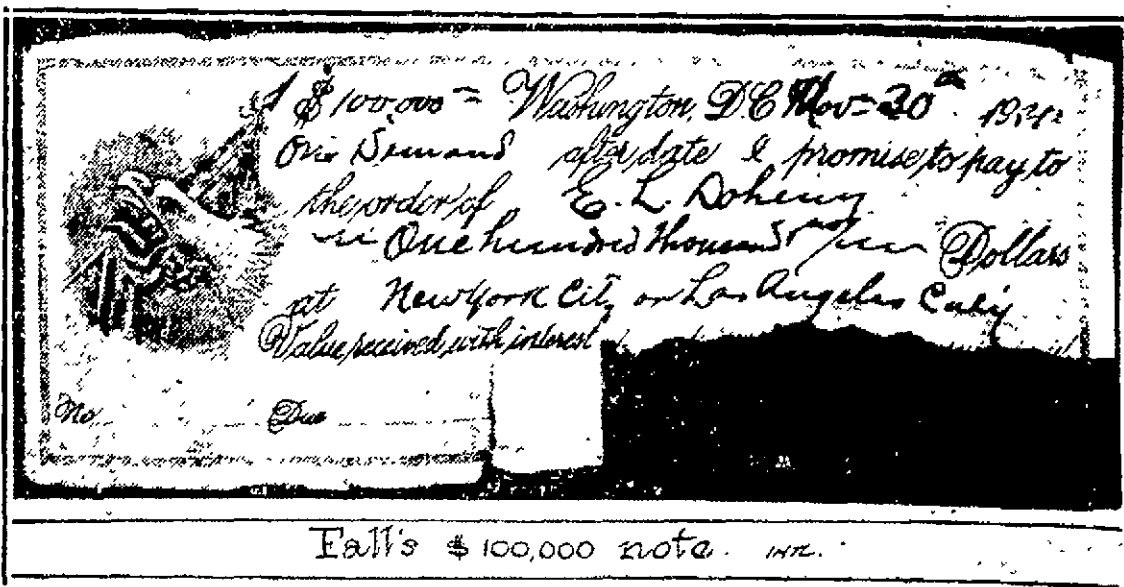 $100,000 = Washington, D.C. Nov = 30 1921
On Demand after date I promise to pay to
the order of E. L. Doheny
One hundred thousand no/ Dollars
at New York City or Los Angeles Calif
Value received with interest
No. Due
Fall's $100,000 note. INR.